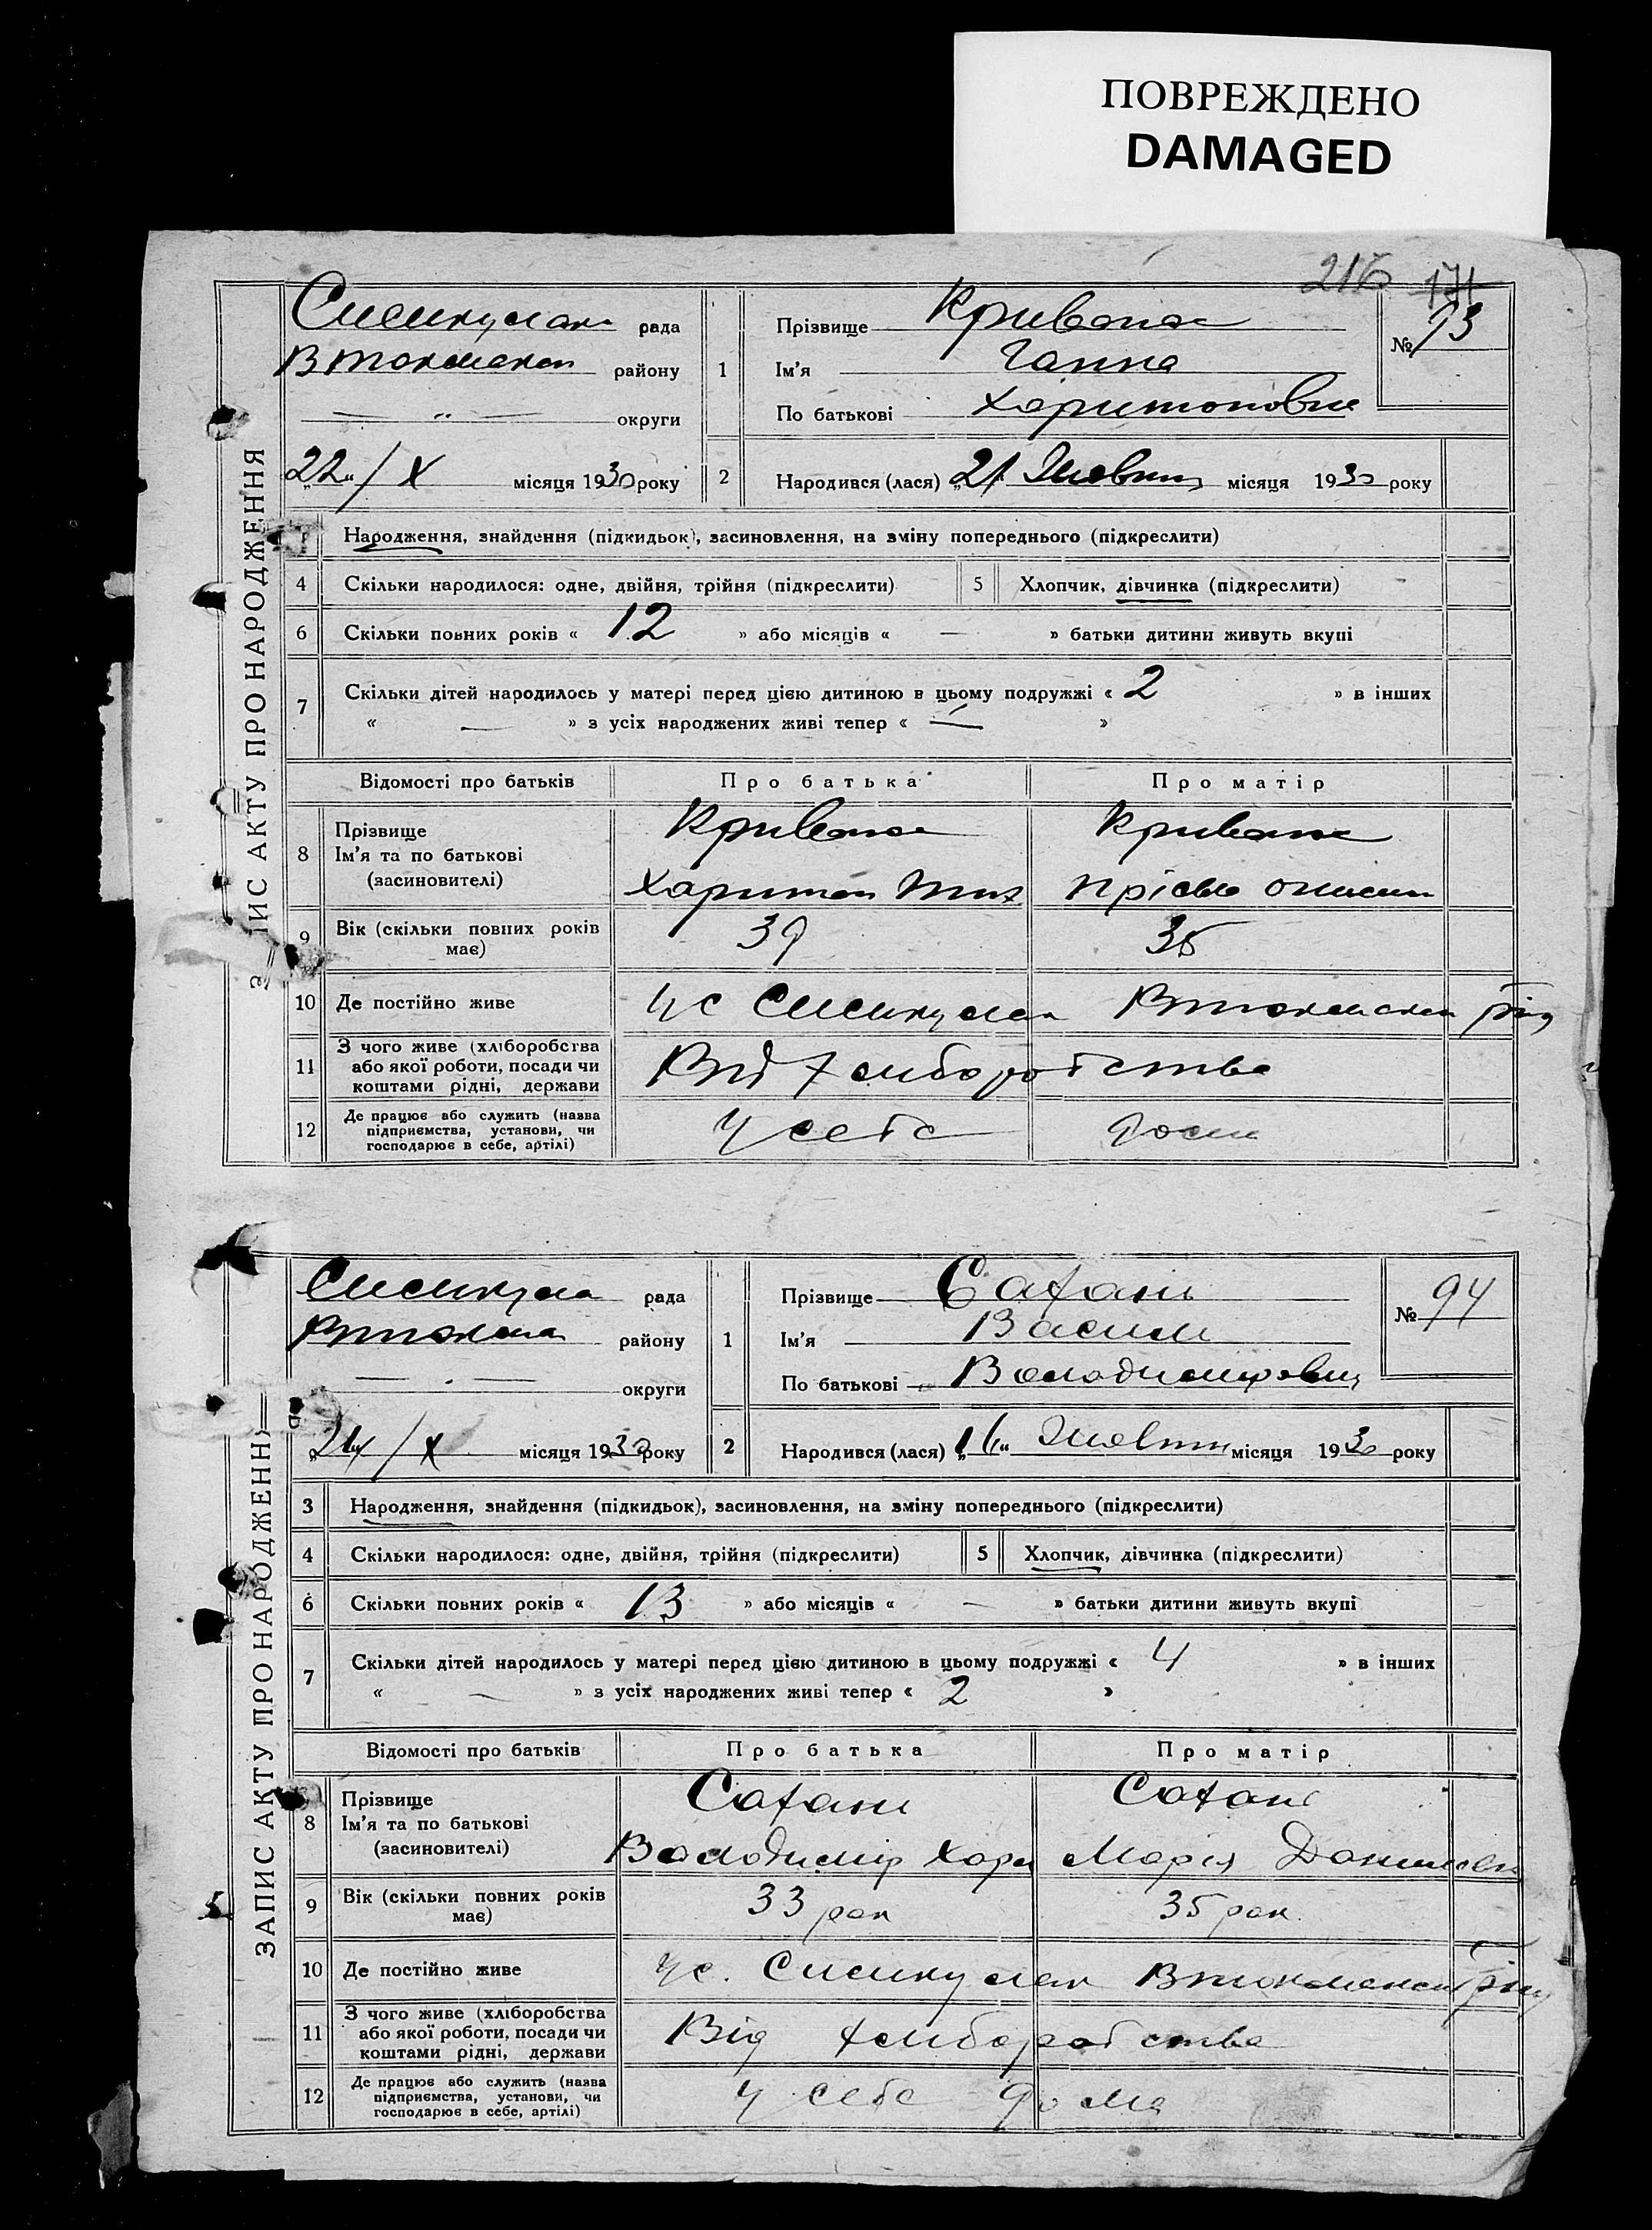 ПОВРЕЖДЕНО
DAMAGED
216 171
ЗАПИС АКТУ ПРО НАРОДЖЕННЯ
рада
району
округи
22 / X місяця 1930 року
1
Прізвище
Ім'я Ганна
По батькові Харитоновна
№ 93
2 Народився (лася) 21 Жовтня місяця 1930 року
Народження, знайдення (підкидьок), засиновлення, на зміну попереднього (підкреслити)
4 Скільки народилося: одне, двійня, трійня (підкреслити) 5 Хлопчик, дівчинка (підкреслити)
6 Скільки повних років « 12 » або місяців « — » батьки дитини живуть вкупі
7 Скільки дітей народилось у матері перед цією дитиною в цьому подружжі « 2 » в інших
« — » з усіх народжених живі тепер « — »
Відомості про батьків Про батька Про матір
8 Прізвище
Ім'я та по батькові
(засиновителі)
Харитон Тих
9 Вік (скільки повних років має) 39 35
10 Де постійно живе
11 З чого живе (хліборобства або якої роботи, посади чи коштами рідні, держави Від хліборобства
12 Де працює або служить (назва підприємства, установи, чи господарює в себе, артілі) У себе дома
ЗАПИС АКТУ ПРО НАРОДЖЕНН
рада
району
округи
24 / X місяця 1930 року
1
Прізвище
Ім'я Василь
По батькові Володимирович
№ 94
2 Народився (лася) Жовтня місяця 1930 року
3 Народження, знайдення (підкидьок), засиновлення, на зміну попереднього (підкреслити)
4 Скільки народилося: одне, двійня, трійня (підкреслити) 5 Хлопчик, дівчинка (підкреслити)
6 Скільки повних років « 13 » або місяців « — » батьки дитини живуть вкупі
7 Скільки дітей народилось у матері перед цією дитиною в цьому подружжі « 4 » в інших
« — » з усіх народжених живі тепер « 2 »
Відомості про батьків Про батька Про матір
8 Прізвище
Ім'я та по батькові
(засиновителі)
Володимір Хари Марія
9 Вік (скільки повних років має) 33 рок 35 рок
10 Де постійно живе
11 З чого живе (хліборобства або якої роботи, посади чи коштами рідні, держави Від хліборобства
12 Де працює або служить (назва підприємства, установи, чи господарює в себе, артілі) У себе дома